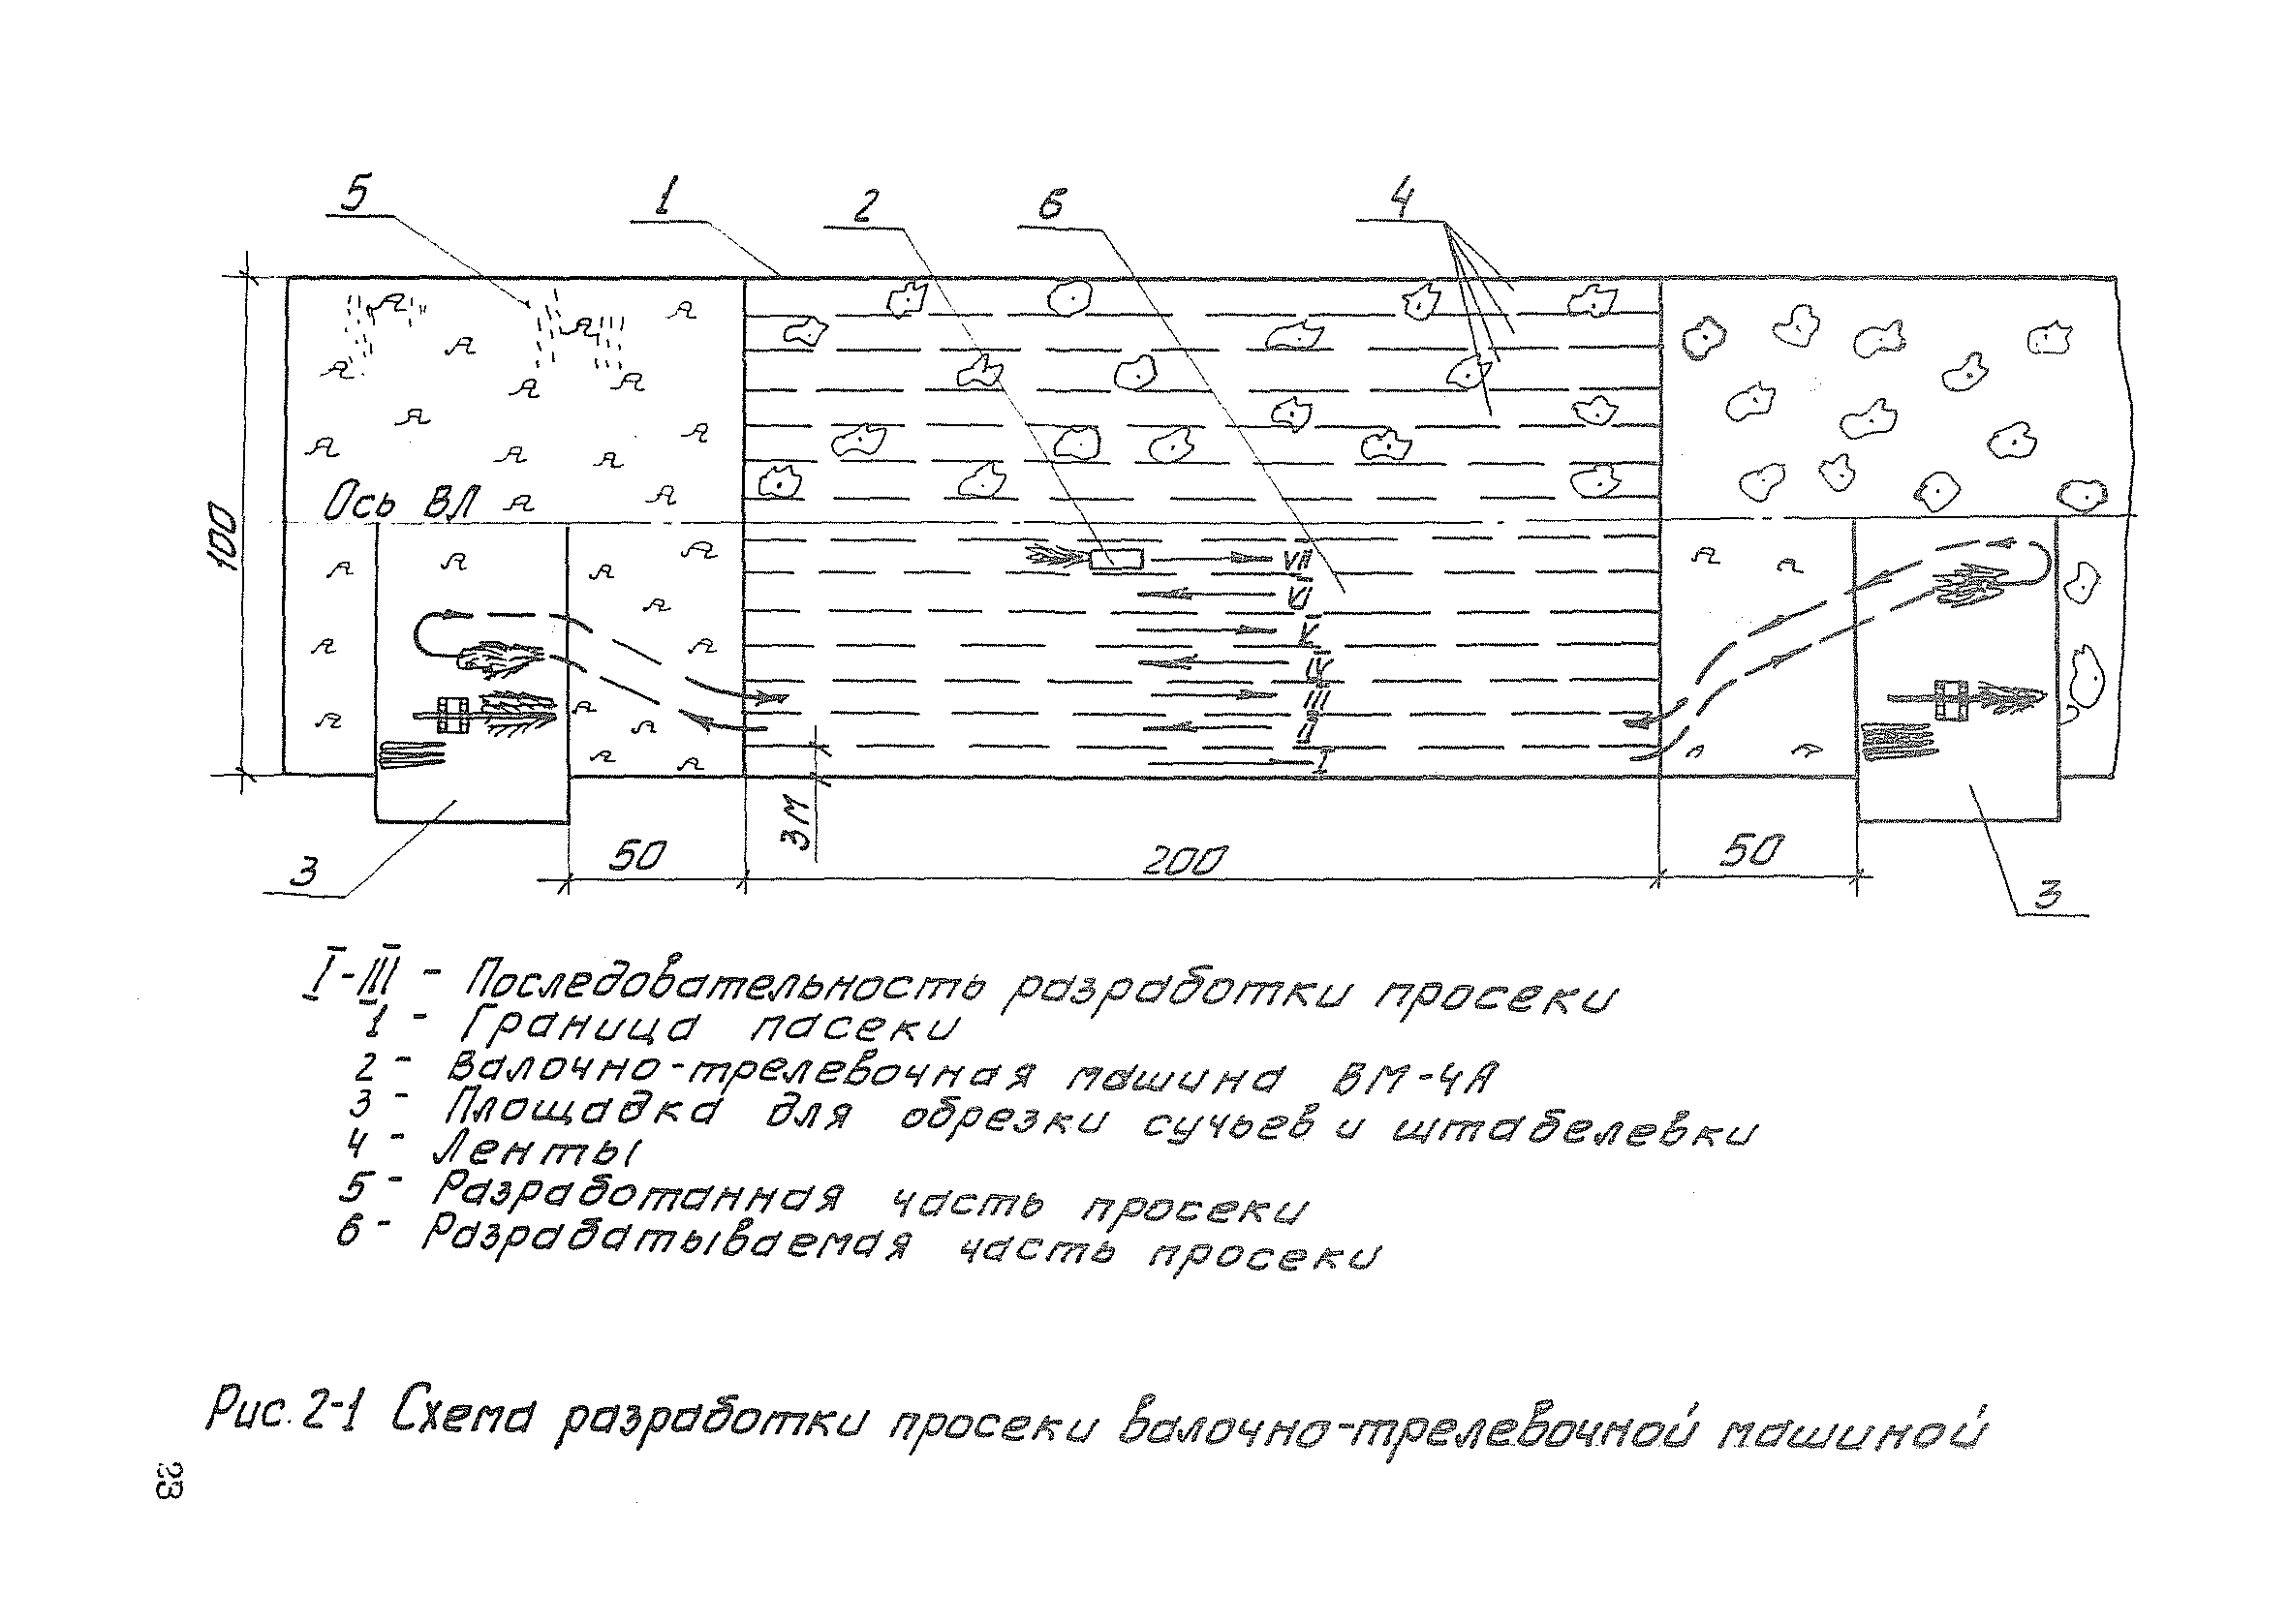 5 1 2 6 4
Ось ВЛ
100
VII
VI
V
IV
III
II
I
3м
50 200 50
3 3
I-III - Последовательность разработки просеки
1 - Граница пасеки
2 - Валочно-трелевочная машина ВМ-4А
3 - Площадка для обрезки сучьев и штабелевки
4 - Ленты
5 - Разработанная часть просеки
6 - Разрабатываемая часть просеки
Рис. 2-1 Схема разработки просеки валочно-трелевочной машиной
23